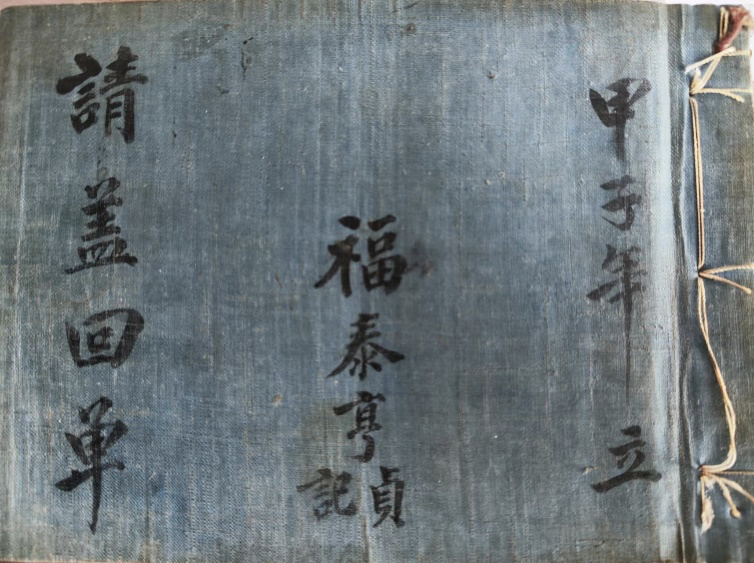 甲子年 立
福泰亨貞記
請盖回单